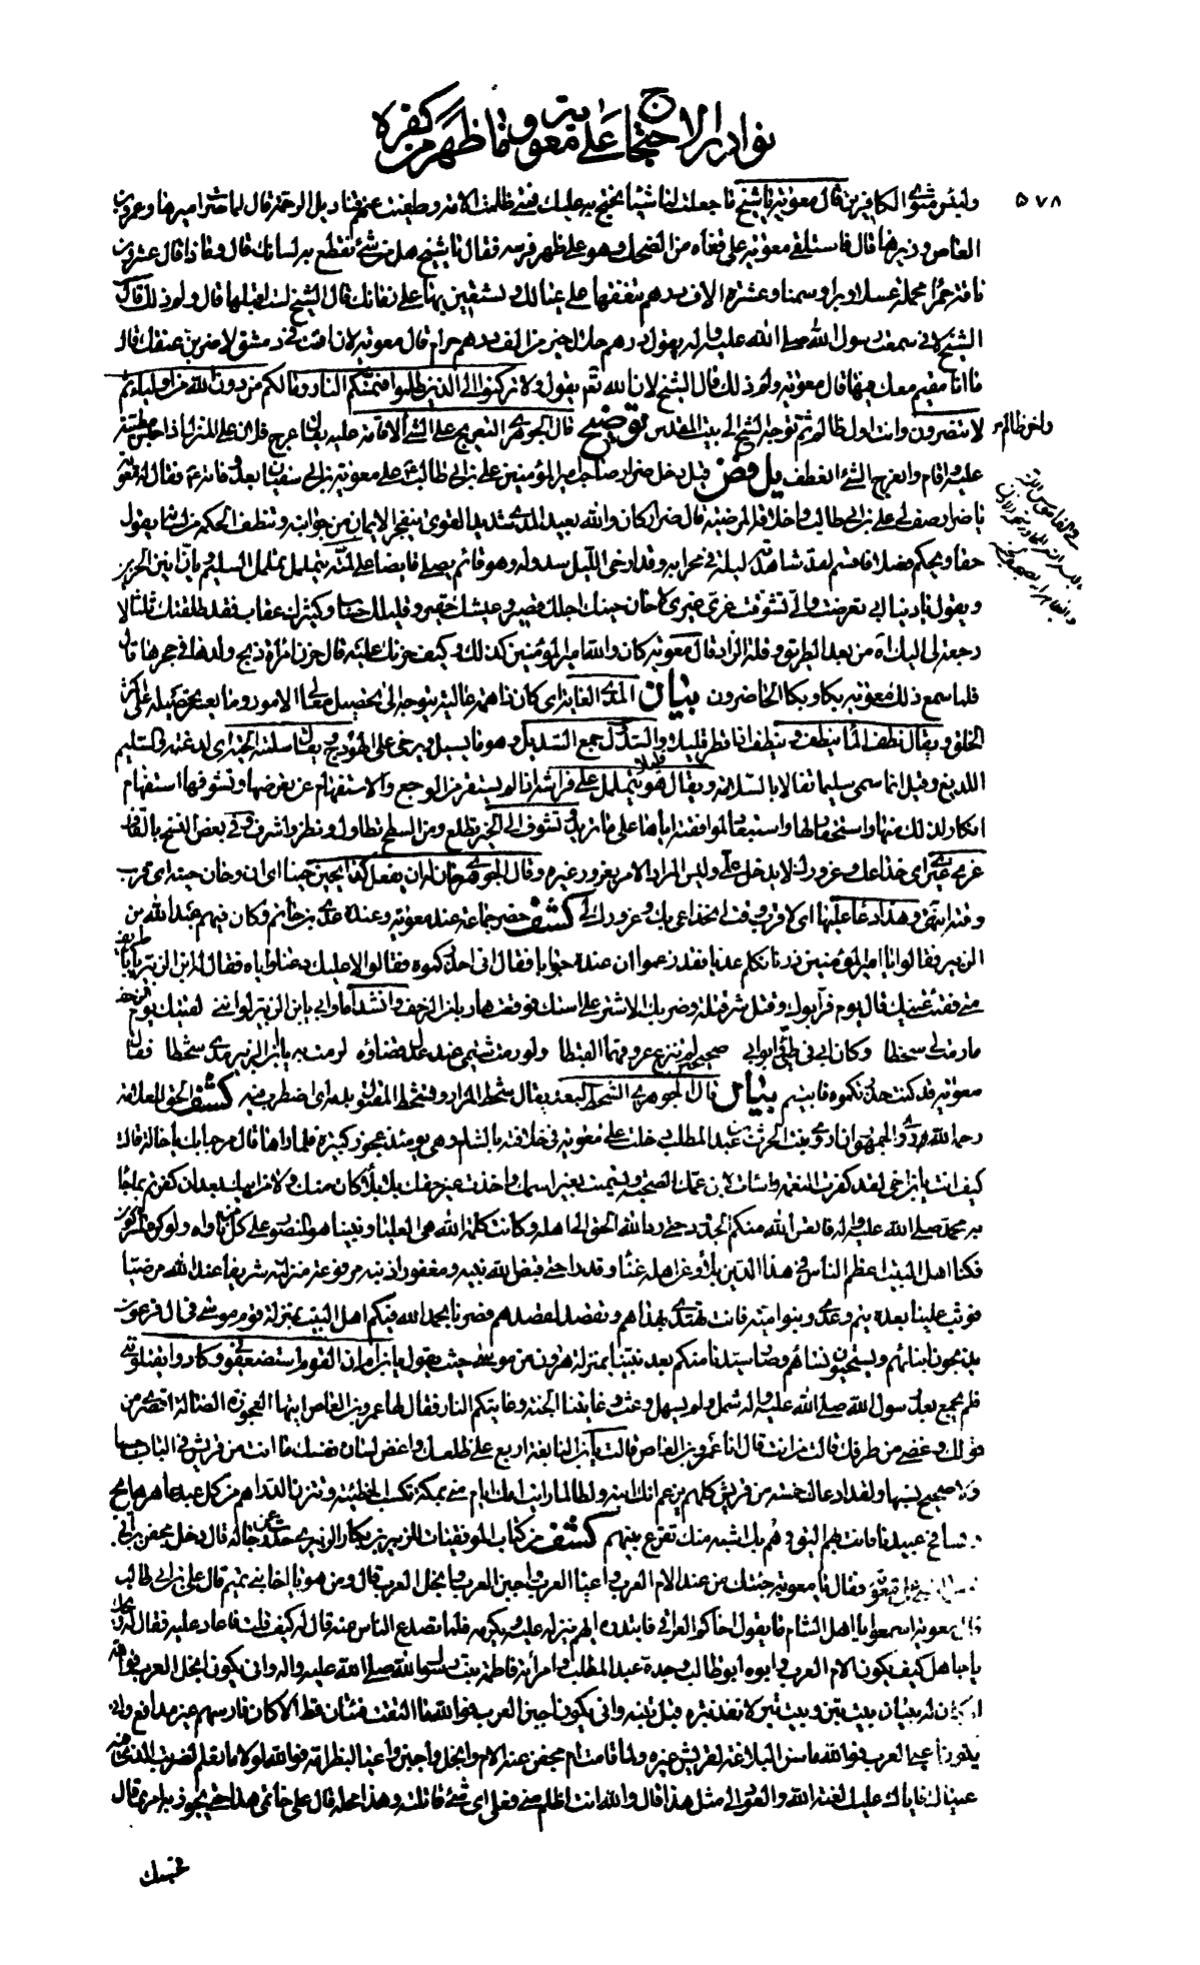 نوادر الاحتجاج على معوية وما ظهر من كفره
٥٧٨
ولبئس مثوى الكافرين قال معوية يا شيخ ما جعلت لنا شيئا نحتج به عليك
العاص وزيرها قال فاستلقى معوية على قفاه من الضحك وهو على ظهر فرسه فقال يا شيخ هل من شئ نقطع به لسانك قال وما ذا قال عشرون
ناقة حمراء محملة عسلا وبرا وسمنا وعشرة الاف درهم تنفقها على عيالك وتستعين بها على زمانك قال الشيخ لست اقبلها قال ولم ذلك قال
الشيخ لانى سمعت رسول الله صلى الله عليه واله يقول درهم حلال خير من الف درهم حرام قال معوية لان اقمت فى دمشق لاضربن عنقك قال
ما انا مقيم معك فيها قال معوية ولم ذلك قال الشيخ لان الله تعم يقول ولا تركنوا الى الذين ظلموا فتمسكم النار وما لكم من دون الله من اولياء ثم
لا تنصرون وانت اول ظالم ثم توجه الشيخ الى بيت المقدس توضيح قال الجوهرى التعريج على الشئ الاقامة عليه يقال عرج فلان على المنزل اذا حبس مطيته
واخر ظالم
عليه واقام وانعرج الشئ انعطف يل فض قيل دخل ضرار صاحب امير المؤمنين على بن ابى طالب على معوية بن ابى سفيان بعد وفاته فقال له معوية
يا ضرار صف لى على بن ابى طالب واخلاقه المرضية قال ضرار كان والله بعيد المدى شديد القوى ينفجر الايمان من جوانبه وتنطف الحكمة من لسانه يقول
حقا ويحكم فصلا فاقسم لقد شاهدته ليلة فى محرابه وقد ارخى الليل سدوله وهو قائم يصلى قابضا على لمته يتململ تململ السليم ويأن انين الحزين
ويقول يا دنيا ابى تعرضت والى تشوقت غرى غيرى لا حان حينك اجلك قصير وعيشك حقير وقليلك حساب وكثيرك عقاب فقد طلقتك ثلثا لا
رجعة لى اليك اه من بعد الطريق وقلة الزاد قال معوية كان والله امير المؤمنين كذلك وكيف حزنك عليه قال حزن امرأة ذبح ولدها فى حجرها قال
فلما سمع ذلك معوية بكا وبكا الحاضرون بيان المدى الغاية اى كان ذا همة عالية يتوجه الى تحصيل معالى الامور وما يعجز عن تحصيله اكثر
الخلق ويقال نطف الماء ينطف وينطف اذا قطر قليلا قليلا والسدل جمع السديل وهو ما يسبل ويرخى على الهودج ويقال سلمته الحية اى لدغته والسليم
اللديغ وقيل انما سمى سليما تفالا بالسلامة ويقال هو يتململ على فراشه اذا لم يستقر من الوجع والاستفهام عن تعرضها وتشوفها استفهام
انكار لذلك منها واستحقار لها واستبعاد لموافقته اياها على ما تريد وتشوف الى الخير تطلع ومن السطح تطاول ونظر واشرف وفى بعض النسخ بالقاف
غرى غيرى اى خداعك وغرورك لا يدخل على وليس المراد الامر بغرور غيره وقال الجوهرى حان له ان يفعل كذا يحين حينا اى ان وحان حينه اى قرب
وقته انتهى وهذا دعاء عليها اى لا قرب وقت انخداعى بك وغرورك لى كشف حضر جماعة عند معوية وعنده عدى بن حاتم وكان فيهم عبد الله بن
الزبير فقالوا يا امير المؤمنين ذرنا نكلم عديا فقد زعموا ان عنده جوابا فقال انى احذركموه فقالوا لا عليك دعنا واياه فقال له ابن الزبير يا با طريف
متى فقئت عينك قال يوم فر ابوك وقتل شر قتلة وضربك الاشتر على استك فوقعت هاربا من الزحف وانشد اما وابى يا بن الزبير لو اننى لقيتك يوم الزحف
ما رمت لى سخطا وكان ابى فى طيئ وابو ابى صحيحين لم تنزع عروقهما القبطا ولو رمت شتمى عند عدل قضاؤه لرمت به يا بن الزبير مدى شحطا فقال
معوية قد كنت حذرتكموه فابيتم بيان قال الجوهرى الشحط البعد يقال شحط المزار وتشحط المقتول بدمه اى اضطرب فيه كشف الحق للعلامة
رحمه الله روى الجمهور ان اروى بنت الحرث بن عبد المطلب دخلت على معوية فى خلافته بالشام وهى يومئذ عجوز كبيرة فلما راها قال مرحبا بك يا خالة قالت
كيف انت يا بن اخى لقد كفرت النعمة واسأت لابن عمك الصحبة وتسميت بغير اسمك واخذت غير حقك بلا بلاء كان منك ولا من ابيك بعد ان كفرتم بما جاء
به محمد صلى الله عليه واله فاتعس الله منكم الجدود حتى رد الله الحق الى اهله وكانت كلمة الله هى العليا ونبينا هو المنصور على كل من ناواه ولو كره المشركون
فكنا اهل البيت اعظم الناس فى هذا الدين بلاء وعن اهله غناء وقدرا حتى قبض الله نبيه مغفورا ذنبه مرفوعة منزلته شريفا عند الله مرضيا
فوثب علينا بعده تيم وعدى وبنو امية فانت تهتدى بهداهم وتقصد لقصدهم فصرنا بحمد الله فيكم اهل البيت بمنزلة قوم موسى فى ال فرعون
يذبحون ابنائهم ويستحيون نسائهم وصار سيدنا منكم بعد نبينا بمنزلة هرون من موسى حيث يقول يا بن ام ان القوم استضعفونى وكادوا يقتلوننى
فلم يجمع بعد رسول الله صلى الله عليه واله شمل ولم يسهل وعث وغايتنا الجنة وغايتكم النار فقال لها عمرو بن العاص ايتها العجوزة الضالة اقصرى من
قولك وغضى من طرفك قالت من انت قال انا عمرو بن العاص قالت يا بن النابغة اربع على ظلعك واعن لشان نفسك ما انت من قريش فى لباب حسبها
ولا صحيح نسبها ولقد ادعاك خمسة من قريش كلهم يزعم انك ابنه ولطالما رايت امك ايام منى بمكة تكسب الخطيئة وتتزن الدراهم من كل عبد عاهر هايج
وتسافح عبيدنا فانت بهم اليق وهم بك اشبه منك تقرع بينهم كشف من كتاب الموفقيات للزبير بن بكار الزبيرى حدث عن رجاله قال دخل محفن بن ابى
محفن الضبى على معوية فقال يا معوية جئتك من عند الام العرب واعيا العرب واجبن العرب وابخل العرب قال ومن هو يا اخا بنى تميم قال على بن ابى طالب
قال معوية اسمعوا يا اهل الشام ما يقول اخاكم العراقى فابتدروه ايهم ينزله عليه ويكرمه فلما تصدع الناس عنه قال له كيف قلت فاعاد عليه فقال له ويحك
يا جاهل كيف يكون الام العرب وابوه ابو طالب وجده عبد المطلب وامراته فاطمة بنت رسول الله صلى الله عليه واله وانى يكون ابخل العرب فوالله
لو كان له بيتان بيت تبن وبيت تبر لانفد تبره قبل تبنه وانى يكون اجبن العرب فوالله ما التقت فئتان قط الا كان فارسهم غير مدافع وانى
يكون اعيى العرب فوالله ما سن البلاغة لقريش غيره ولما قامت ام محفن عنه الام وابخل واجبن واعيا لبظر امه فوالله لولا ما تعلم لضربت الذى فيه
عيناك فاياك عليك لعنة الله والعود الى مثل هذا قال والله انت اظلم منى فعلى اى شئ قاتلته وهذا محله قال على خاتمى هذا حتى يجوز به امرى قال
فحسبك